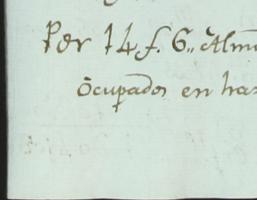 Per 14 f. 6,, Alm
Ocupados en has